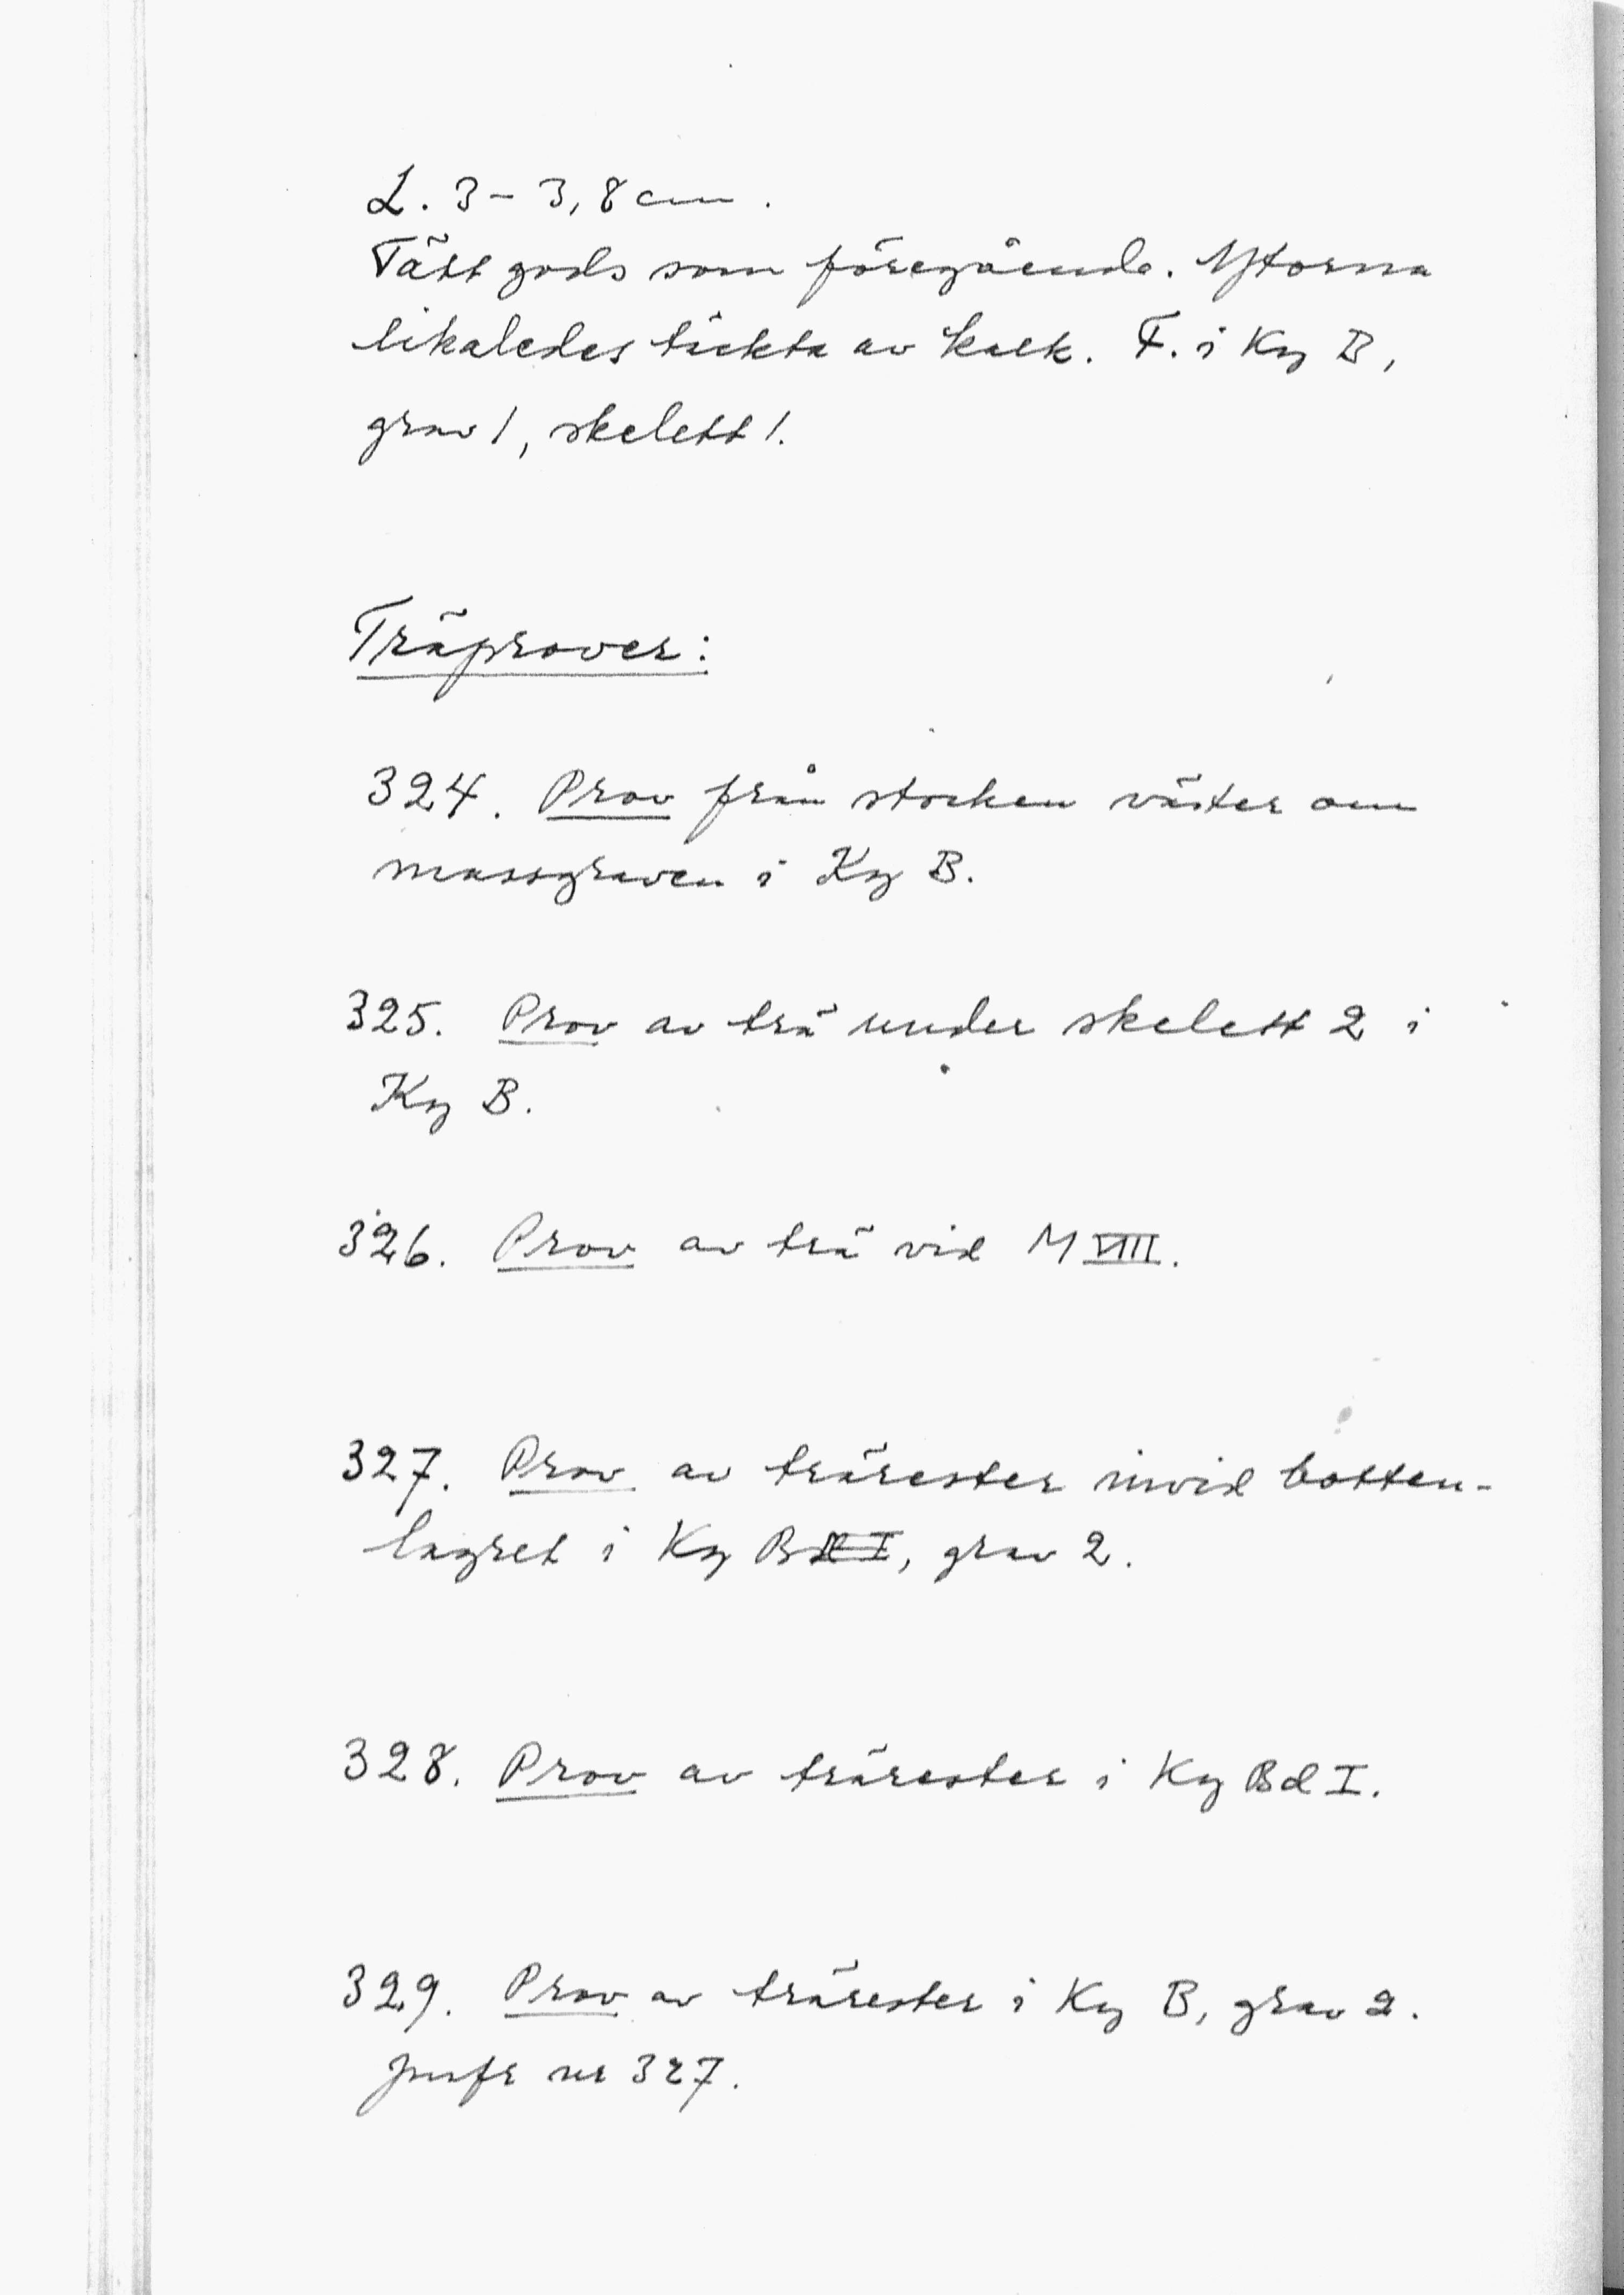 L. 3 – 3,8 cm.
Tätt gods som föregående. Ytorna
likaledes täckta av kalk. F. i Kg B,
grav 1, skelett 1.
Träprover:
324. Prov från stocken väster om
massgraven i Kg B.
325. Prov av trä under skelett 2 i
Kg B.
326. Prov av trä vid M VIII.
327. Prov av trärester invid botten-
lagret i Kg B, grav 2.
328. Prov av trärester i Kg Bd I.
329. Prov av trärester i Kg B, grav 2.
Jmfr nr 327.